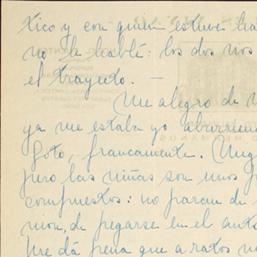 tico y con quien estuve ha
no le hablé: los dos nos
el trayecto. —
Me alegro de v
ya me estaba yo aburrien
Soto, francamente.
pero las niñas son unos
compuestos: no paran de
nion, de pegarse en el auto
me dá pena que a ratos